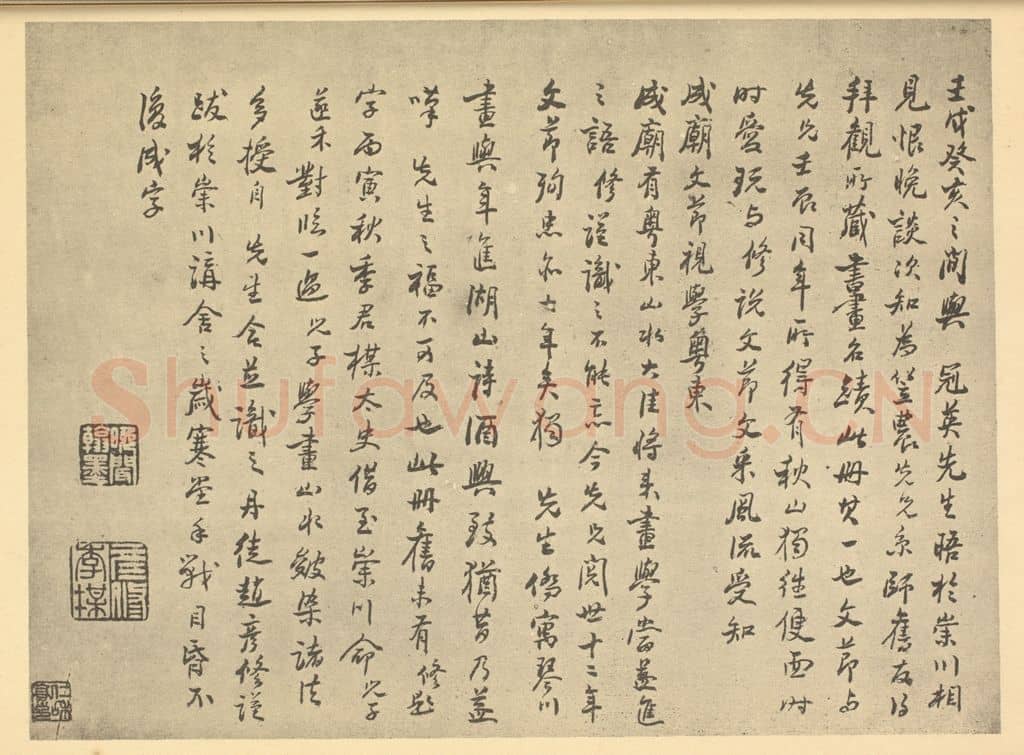 壬戌癸亥之間與 冠英先生晤於崇川相
見恨晚談次知為笠農先兄京師舊友得
拜觀所藏書畫名蹟此冊其一也文節与
先兄壬辰同年所得有秋山獨往便面
时愛玩与修說文節文采風流受知
成廟文節視學粵東
成廟有粵東山水大佳將來畫學當益進
之語修謹識之不能忘今先兄閱世十二年
文節殉忠亦七年矣獨 先生僑寓琴川
畫與年進湖山詩酒興致猶昔乃益
嘆 先生之福不可及也此冊舊未有修題
字丙寅秋季君楳太史借至崇川命兒子
並禾對臨一過兒子學畫山水皴染諸法
多授自 先生合並識之丹徒趙彥修謹
跋於崇川講舍之歲寒堂手戰目昏不
復成字
Shufawang.CN